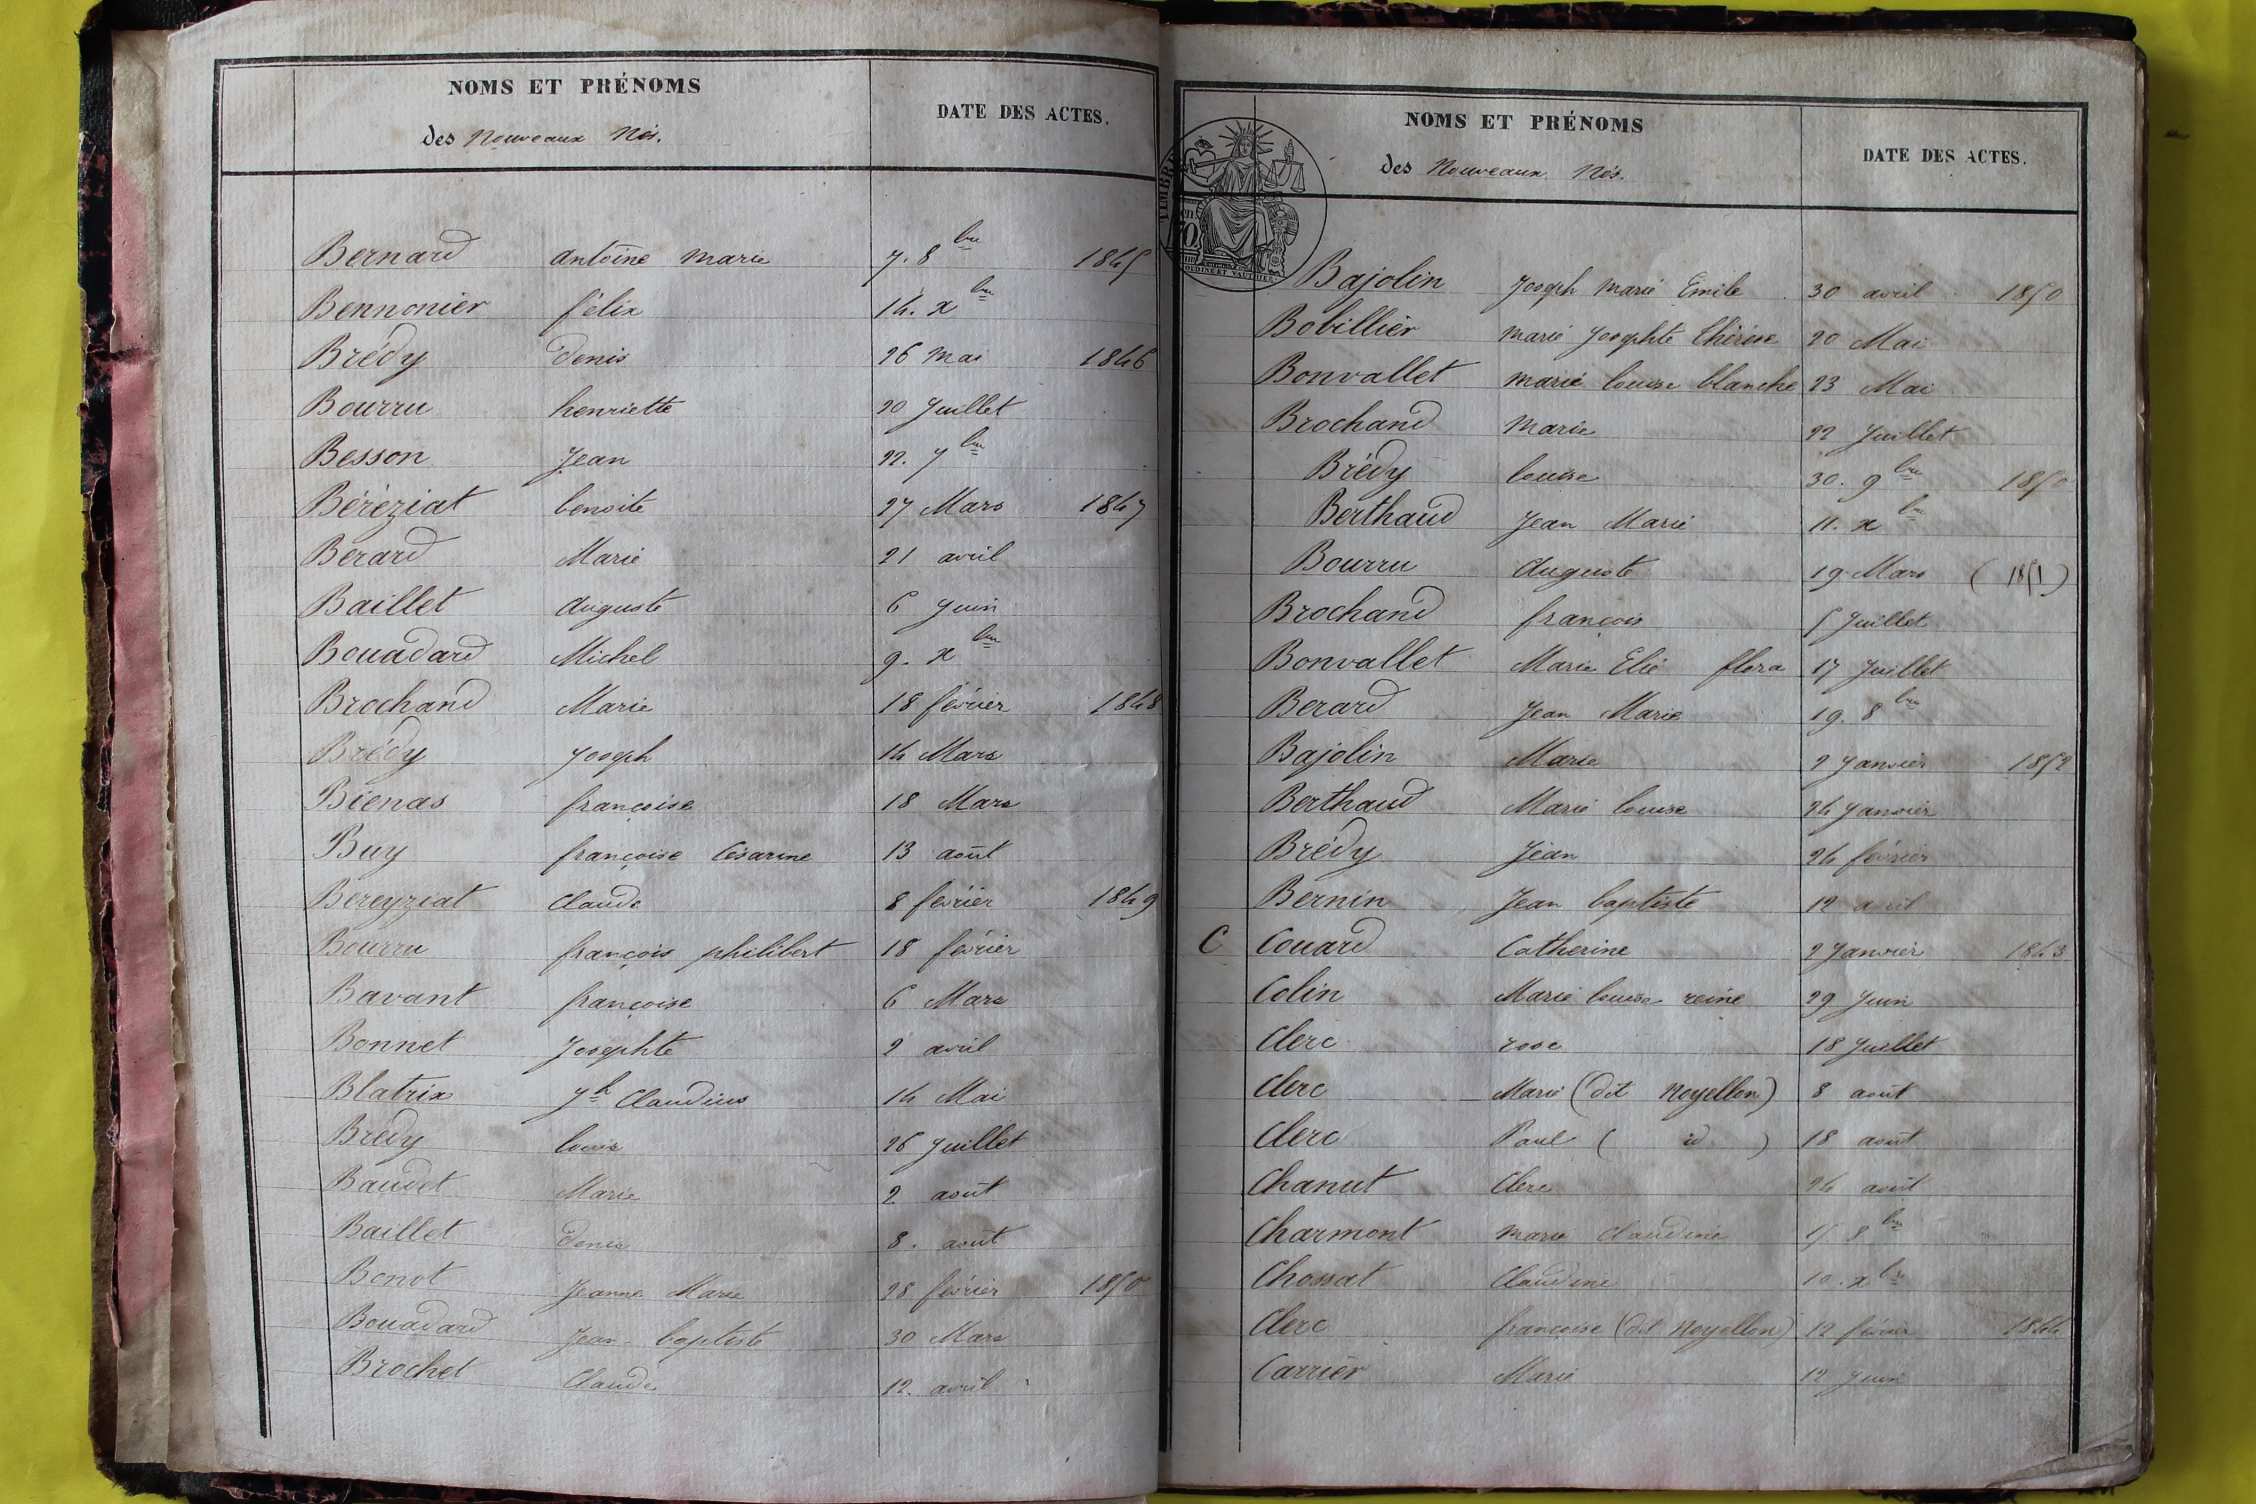 NOMS ET PRÉNOMS
des Nouveaux Nés.
DATE DES ACTES.
Bernard antoine marie 7. 8bre 1845
Bennonier félix 14. xbre
Brédy denis 26 mai 1846
Bourru henriette 20 Juillet
Besson Jean 22. 7bre
Béréziat benoite 27 Mars 1847
Berard Marie 21 avril
Baillet auguste 6 Juin
Bouadard Michel 9. xbre
Brochand Marie 18 février 1848
Brédy Joseph 14 Mars
Bienas françoise 18 Mars
Buy françoise Césarine 13 août
Bereyziat Claude 8 février 1849
Bourru françois philibert 18 février
Bavant françoise 6 Mars
Bonnet Josephte 2 avril
Blatrix Jh Claudius 14 Mai
Brédy louis 26 Juillet
Baudet Marie 2 août
Baillet denis 8. août
Benot Jeanne Marie 28 février 1850
Bouadard Jean-baptiste 30 Mars
Brochet Claude 12. avril
NOMS ET PRÉNOMS
des Nouveaux Nés.
DATE DES ACTES.
TIMBRE
Bajolin Joseph Marie Emile 30 avril 1850
Bobillier marie Josephte thérèse 20 Mai
Bonvallet marie louise blanche 23 Mai
Brochand Marie 22 Juillet
Brédy louise 30. 9bre 1850
Berthaud Jean Marie 11. xbre
Bourru auguste 19 Mars (1851)
Brochand françois 5 Juillet
Bonvallet Marie Elie flora 17 Juillet
Berard Jean Marie 19. 8bre
Bajolin Marie 2 Janvier 1852
Berthaud Marie louise 24 Janvier
Brédy Jean 24 février
Bernin Jean baptiste 12 avril
C Couard Catherine 2 Janvier 1843
Colin Marie louise reine 29 Juin
Clerc rose 18 Juillet
Clerc Marie (dit Noyellon) 8 août
Clerc Paul ( id ) 18 août
Chanut Clerc 24 août
Charmont Marie Claudine 15 8bre
Chossat Claudine 10. xbre
Clerc françoise (dit Noyellon) 12 février 1844
Carrier Marie 12 Juin